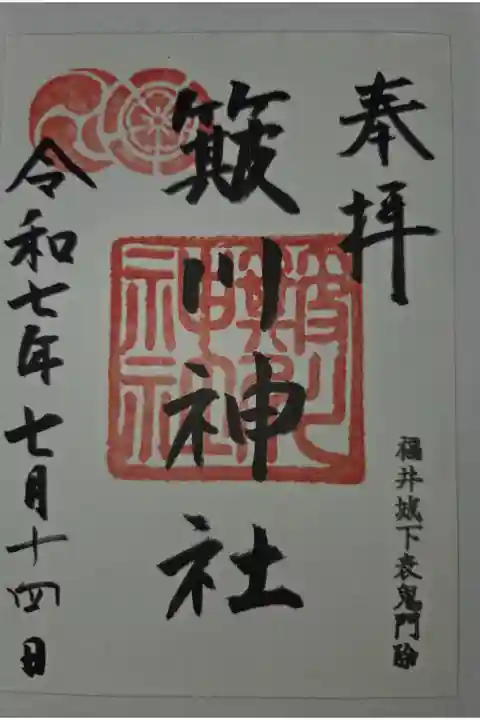 奉拝
福井城下表鬼門除
簸川神社
簸川
神社
令和七年七月十四日